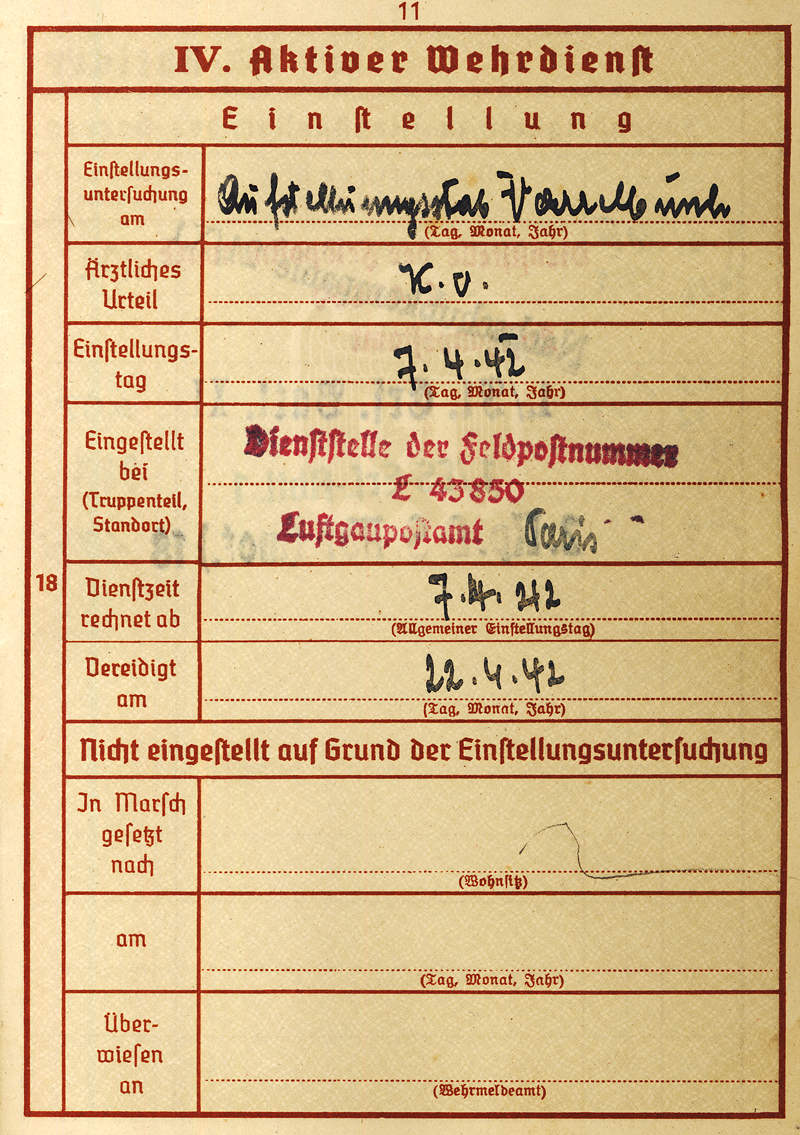 11
IV. Aktiver Wehrdienst
Einstellung
Einstellungs-
untersuchung
am
Aufstellungsstab
(Tag, Monat, Jahr)
Ärztliches
Urteil
K.v.
Einstellungs-
tag
7.4.42
(Tag, Monat, Jahr)
Eingestellt
bei
(Truppenteil,
Standort)
Dienststelle der Feldpostnummer
L 43850
Luftgaupostamt Paris
18
Dienstzeit
rechnet ab
7.4.42
(Allgemeiner Einstellungstag)
Vereidigt
am
22.4.42
(Tag, Monat, Jahr)
Nicht eingestellt auf Grund der Einstellungsuntersuchung
In Marsch
gesetzt
nach
(Wohnsitz)
am
(Tag, Monat, Jahr)
Über-
wiesen
an
(Wehrmeldeamt)